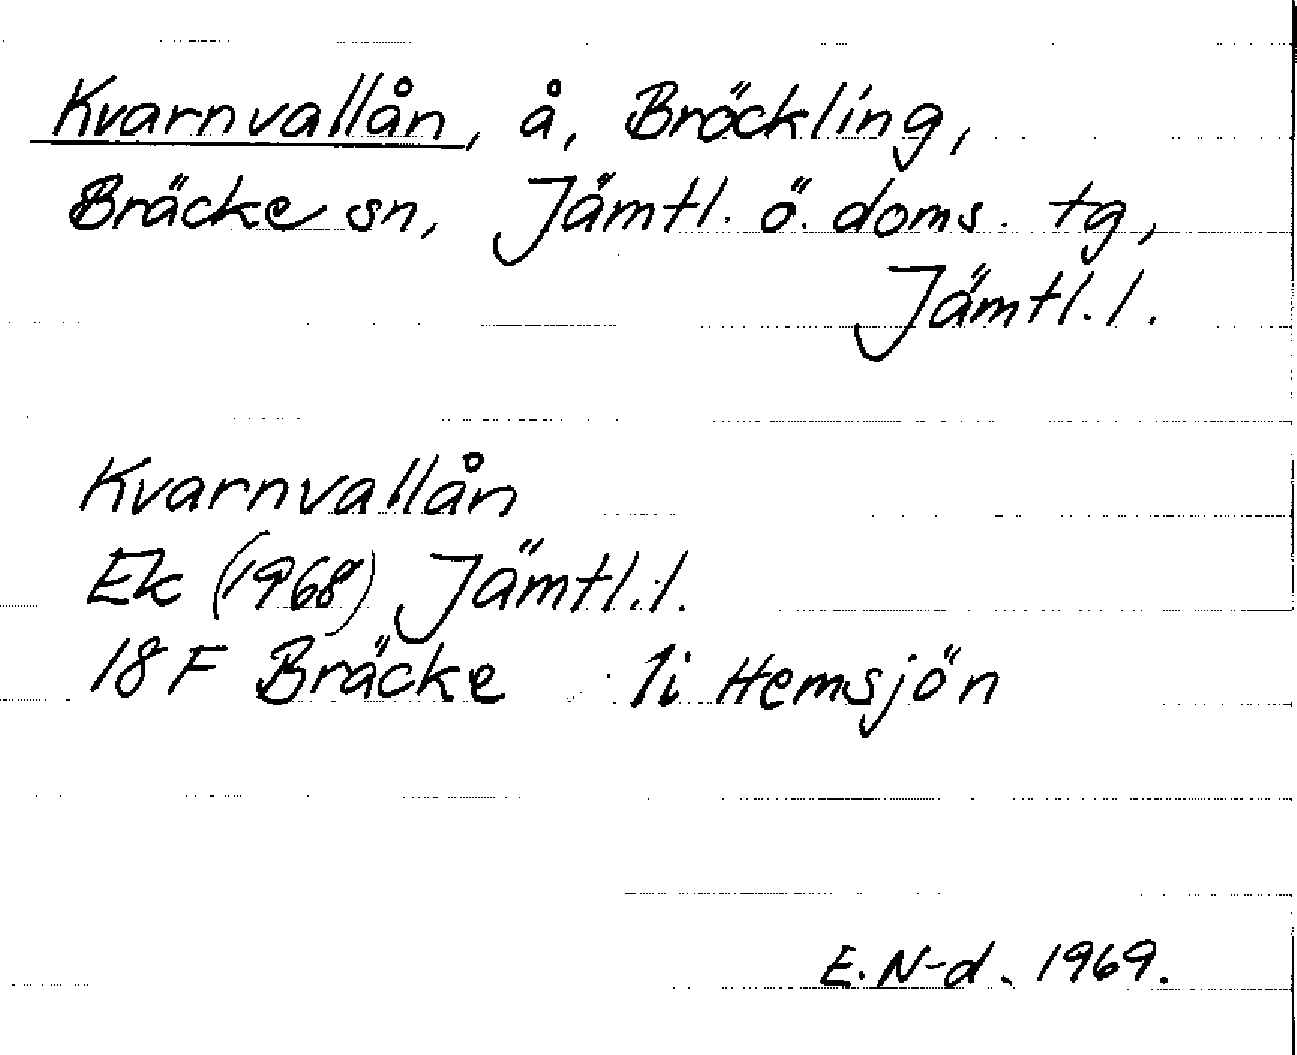 Kvarnvallån, å, Bröckling,
Bräcke sn, Jämtl. ö. doms. tg,
Jämtl. l.
Kvarnvallån
Ek (1968) Jämtl. l.
18 F Bräcke 1i Hemsjön
E. N-d. 1969.